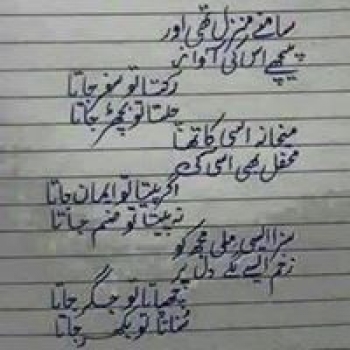 سامنے منزل تھی اور
پیچھے اس کی آواز
رکتا تو سفر جاتا
چلتا تو بچھڑ جاتا
میخانہ اسی کا تھا
محفل بھی اسی کی
اگر پیتا تو ایمان جاتا
نہ پیتا تو صنم جاتا
سزا ایسی ملی مجھ کو
زخم ایسے لگے دل پر
چھپاتا تو جگر جاتا
سُناتا تو بکھر جاتا